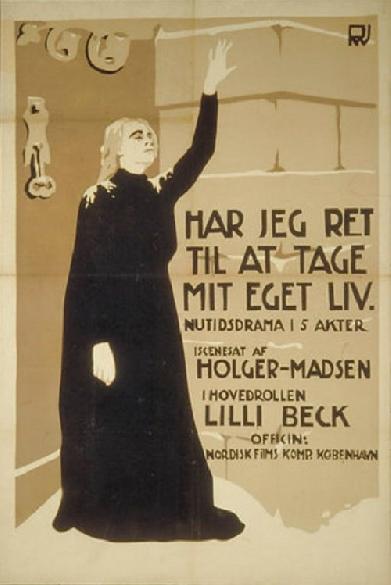 HAR JEG RET
TIL AT TAGE
MIT EGET LIV.
NUTIDSDRAMA I 5 AKTER
ISCENESAT AF
HOLGER-MADSEN
I HOVEDROLLEN
LILLI BECK
OFFICIN:
NORDISK FILMS KOMP. KØBENHAVN